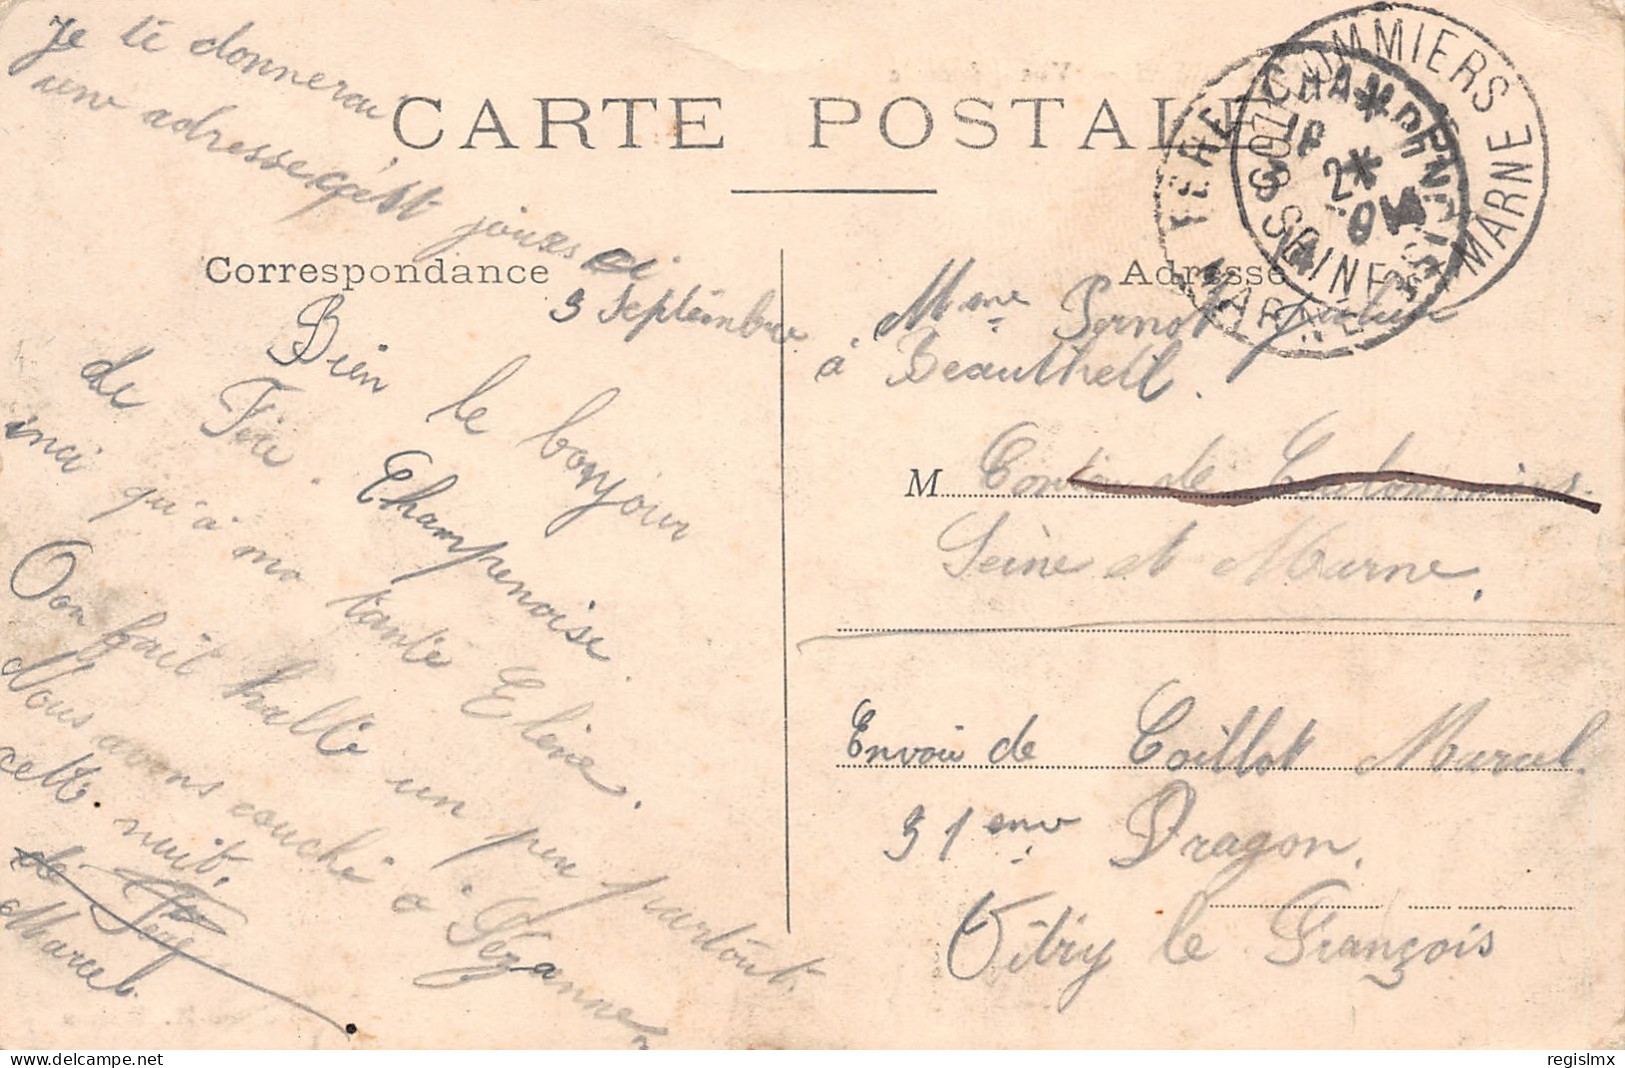 Je te donnerai
une adresse c'est
jours ci
CARTE POSTALE
Correspondance
3 Septembre
Bien le bonjour
de Fère Champenoise
inci qu'à ma tante Elène.
On fait halte un peu partout.
Nous avons couché à Sézanne
cette nuit.
de Fère
Marcel.
FÈRE-CHAMPENOISE
MARNE
COULOMMIERS
SEINE ET MARNE
Adresse
Mme Pernot
à Beautheil.
M Canton de Coulommiers.
Seine et Marne.
Envoie de Coillot Marcel.
31eme Dragon.
Vitry le François
regislmx